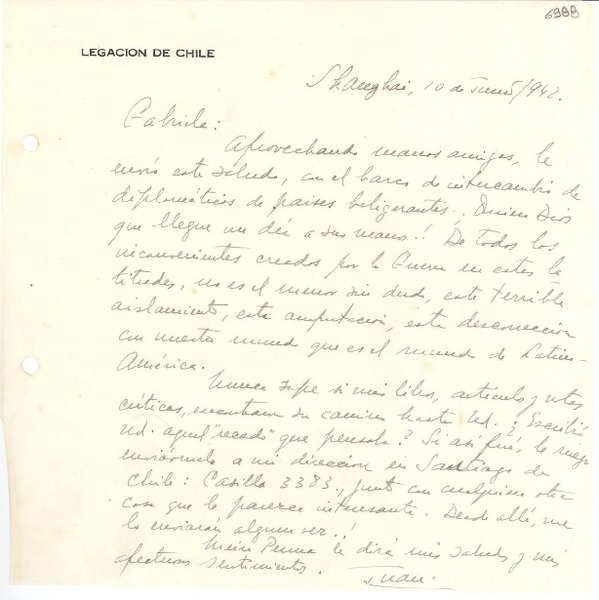 6988
LEGACION DE CHILE
Shanghai, 10 de Junio/942.
Gabriela:
Aprovechando manos amigas, le
envío este saludo, con el barco de intercambio de
diplomáticos de países beligerantes. Quiera Dios
que llegue un día a sus manos!! De todos los
inconvenientes creados por la Guerra en estas la
titudes, no es el menor sin duda, este terrible
aislamiento, esta amputación, esta desconección
con nuestro mundo que es el mundo de Latino-
América.
Nunca supe si mis libros, artículos y notas
críticas, encontraron su camino hasta Ud.? Escribió
Ud. aquel "recado" que pensaba? Si así fué, le ruego
enviármelo a mi dirección en Santiago de
Chile: Casilla 3383., junto con cualquier otra
cosa que le parezca interesante. Desde allí, me
lo enviarán alguna vez..!
Penna le dirá mis saludos y mis
afectuosos sentimientos.
Juan.